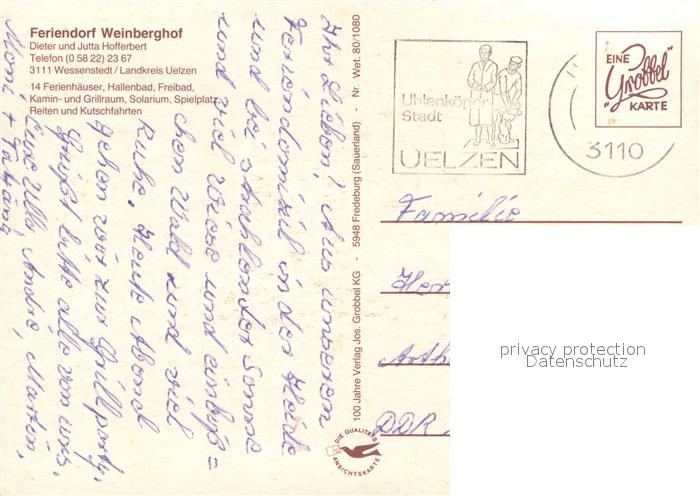 Feriendorf Weinberghof
Dieter und Jutta Hofferbert
Telefon (0 58 22) 23 67
3111 Wessenstedt / Landkreis Uelzen
14 Ferienhäuser, Hallenbad, Freibad,
Kamin- und Grillraum, Solarium, Spielplatz,
Reiten und Kutschfahrten
Ihr Lieben! Aus unserem
Feriendomizil in der Heide
und bei strahlender Sonne
und viel Wiese und ein biß=
chen Wald und viel
Ruhe. Heute Abend
gehen wir zur Grillparty.
Grüßt bitte alle von uns.
Eure Ulla André, Martin,
Moni +
100 Jahre Verlag Jos. Grobbel KG - 5948 Fredeburg (Sauerland) - Nr. Wet. 80/1080
DIE QUALITÄTS
ANSICHTSKARTE
Uhlenköper-
Stadt
UELZEN
3110
EINE
"Grobbel"
KARTE
Familie
Her
Arth
DDR
privacy protection
Datenschutz